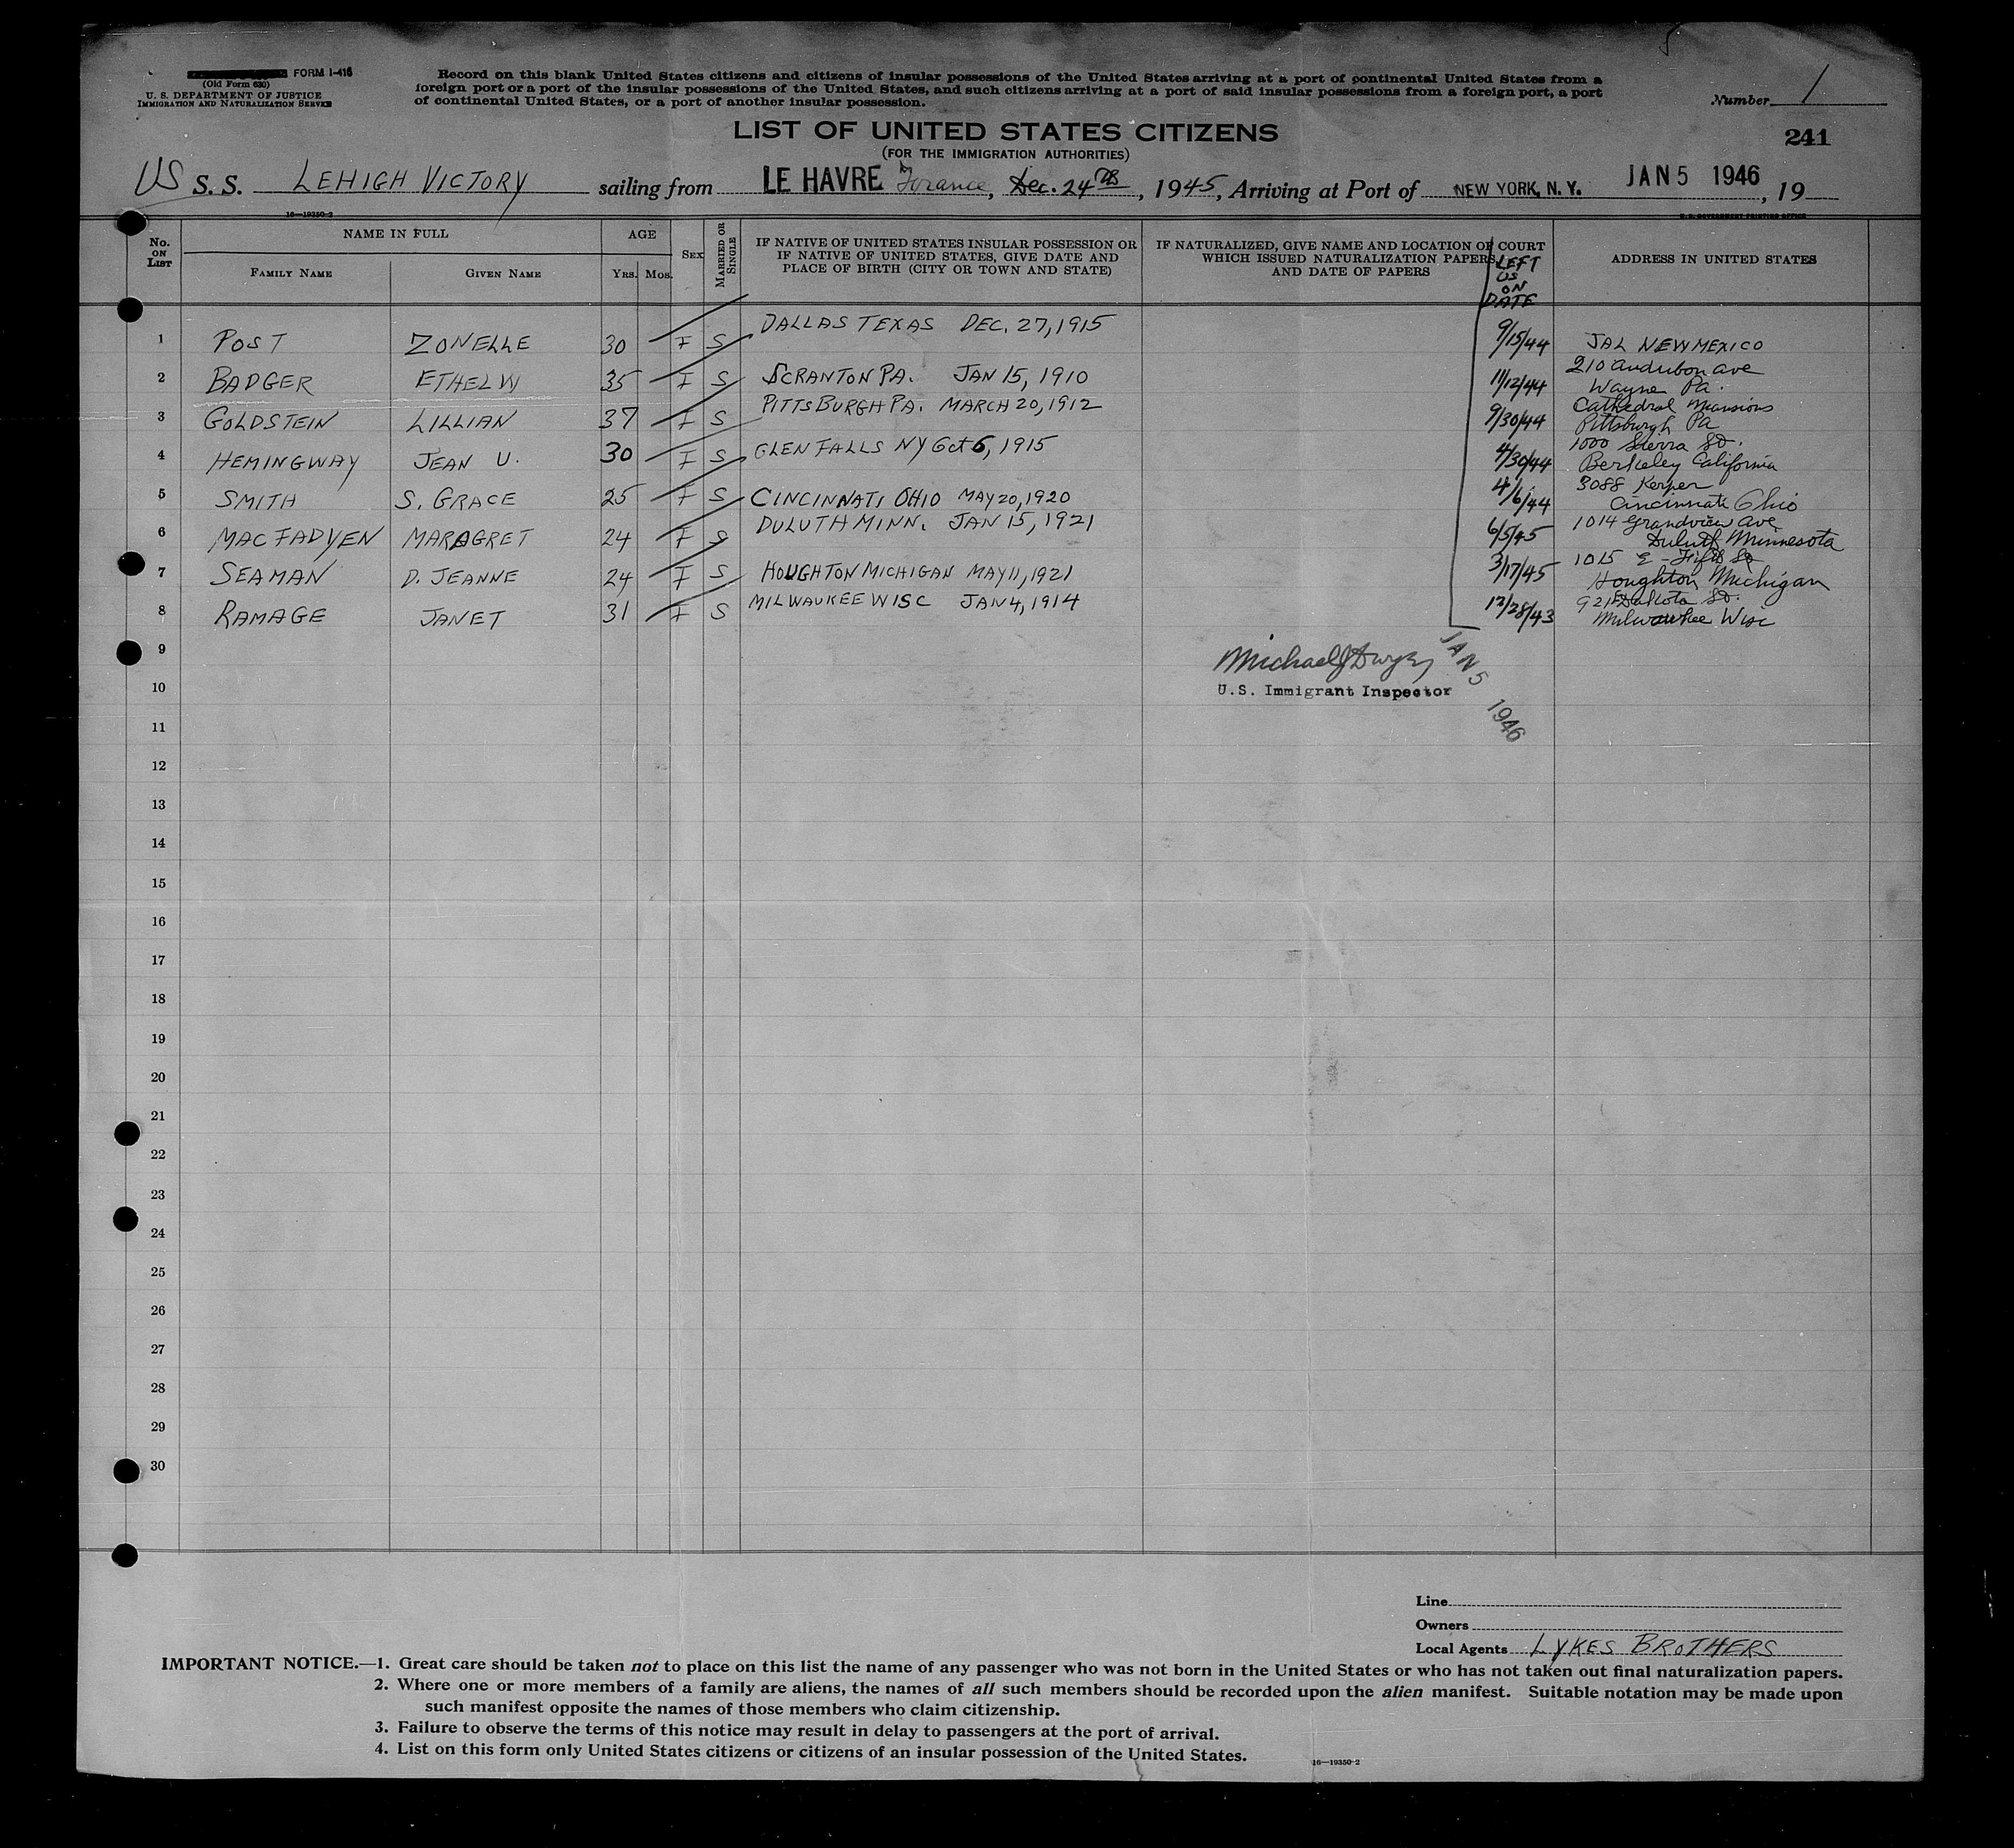 FORM I-416
(Old Form 630)
U. S. DEPARTMENT OF JUSTICE
IMMIGRATION AND NATURALIZATION SERVICE
Record on this blank United States citizens and citizens of insular possessions of the United States arriving at a port of continental United States from a
foreign port or a port of the insular possessions of the United States, and such citizens arriving at a port of said insular possessions from a foreign port, a port
of continental United States, or a port of another insular possession.
Number 1
LIST OF UNITED STATES CITIZENS
241
(FOR THE IMMIGRATION AUTHORITIES)
US S. S. LEHIGH VICTORY sailing from LE HAVRE France, Dec. 24th, 1945, Arriving at Port of NEW YORK, N. Y. JAN 5 1946, 19
16—19350-2
U. S. GOVERNMENT PRINTING OFFICE
No. ON LIST
NAME IN FULL
FAMILY NAME
GIVEN NAME
AGE
YRS. MOS.
SEX
MARRIED OR SINGLE
IF NATIVE OF UNITED STATES INSULAR POSSESSION OR
IF NATIVE OF UNITED STATES, GIVE DATE AND
PLACE OF BIRTH (CITY OR TOWN AND STATE)
IF NATURALIZED, GIVE NAME AND LOCATION OF COURT
WHICH ISSUED NATURALIZATION PAPERS,
AND DATE OF PAPERS
LEFT
US
ON
DATE
ADDRESS IN UNITED STATES
1 POST ZONELLE 30 F S DALLAS TEXAS DEC. 27, 1915 9/15/44 JAL NEW MEXICO
2 BADGER ETHEL W 35 F S SCRANTON PA. JAN 15, 1910 11/12/44 210 Audubon Ave
Wayne Pa.
3 GOLDSTEIN LILLIAN 37 F S PITTSBURGH PA. MARCH 20, 1912 9/30/44 Cathedral Mansions
Pittsburgh Pa
4 HEMINGWAY JEAN U. 30 F S GLEN FALLS NY Oct 6, 1915 4/30/44 1000 Sierra St.
Berkeley California
5 SMITH S. GRACE 25 F S CINCINNATI OHIO MAY 20, 1920 4/6/44 3088 Kerper
Cincinnati Ohio
6 MACFADYEN MARAGRET 24 F S DULUTH MINN. JAN 15, 1921 6/5/45 1014 Grandview Ave
Duluth Minnesota
7 SEAMAN D. JEANNE 24 F S HOUGHTON MICHIGAN MAY 11, 1921 3/17/45 1015 E Fifth St
Houghton Michigan
8 RAMAGE JANET 31 F S MILWAUKEE WISC JAN 4, 1914 12/28/43 921 Dakota St.
Milwaukee Wisc
9
Michael J Dwyer
U.S. Immigrant Inspector
JAN 5 1946
10
11
12
13
14
15
16
17
18
19
20
21
22
23
24
25
26
27
28
29
30
Line
Owners
Local Agents LYKES BROTHERS
IMPORTANT NOTICE.—1. Great care should be taken not to place on this list the name of any passenger who was not born in the United States or who has not taken out final naturalization papers.
2. Where one or more members of a family are aliens, the names of all such members should be recorded upon the alien manifest. Suitable notation may be made upon
such manifest opposite the names of those members who claim citizenship.
3. Failure to observe the terms of this notice may result in delay to passengers at the port of arrival.
4. List on this form only United States citizens or citizens of an insular possession of the United States.
16—19350-2